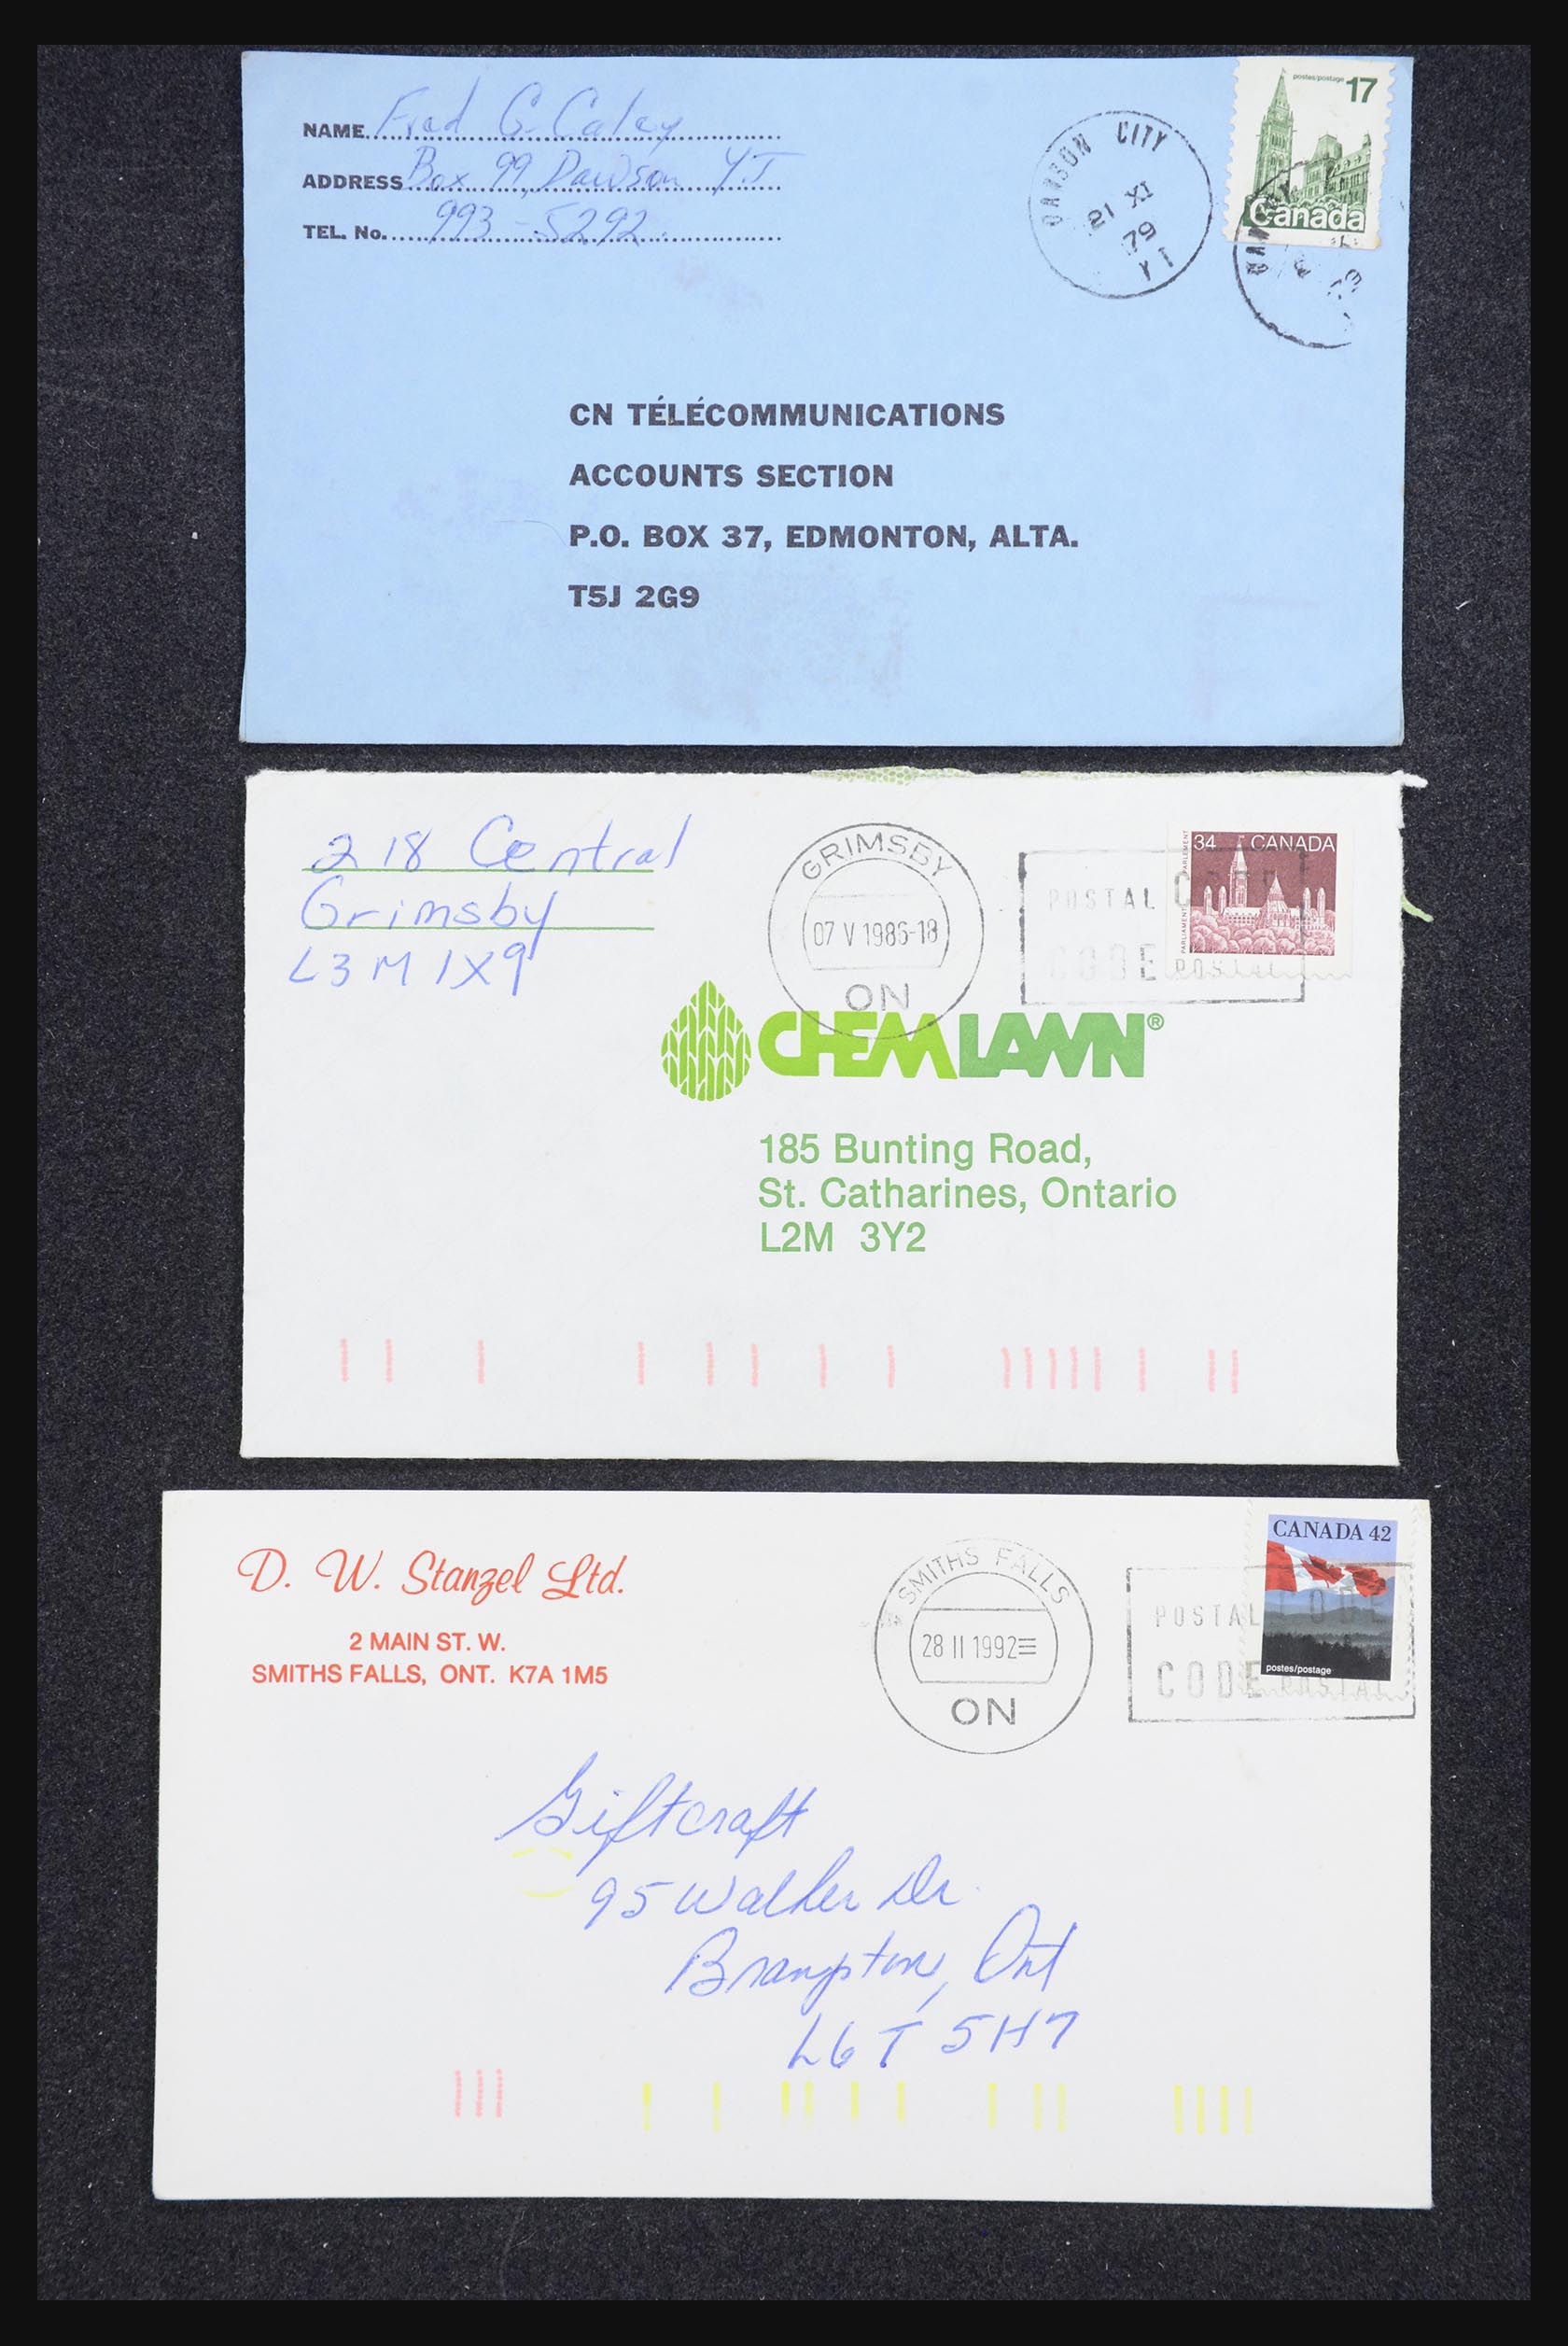 NAME Fred G. Caley
ADDRESS Box 99, Dawson Y.T
TEL. No. 993-5292
DAWSON CITY
21 XI
79
YT
postes/postage 17
Canada
CN TÉLÉCOMMUNICATIONS
ACCOUNTS SECTION
P.O. BOX 37, EDMONTON, ALTA.
T5J 2G9
218 Central
Grimsby
L3M 1X9
GRIMSBY
07 V 1986-18
ON
POSTAL CODE
CODE POSTAL
34 CANADA
PARLIAMENT PARLEMENT
CHEMLAWN®
185 Bunting Road,
St. Catharines, Ontario
L2M 3Y2
D. W. Stanzel Ltd.
2 MAIN ST. W.
SMITHS FALLS, ONT. K7A 1M5
SMITHS FALLS
28 II 1992
ON
POSTAL CODE
CODE POSTAL
CANADA 42
postes/postage
Giftcraft
95 Walker Dr.
Brampton, Ont
L6T 5H7